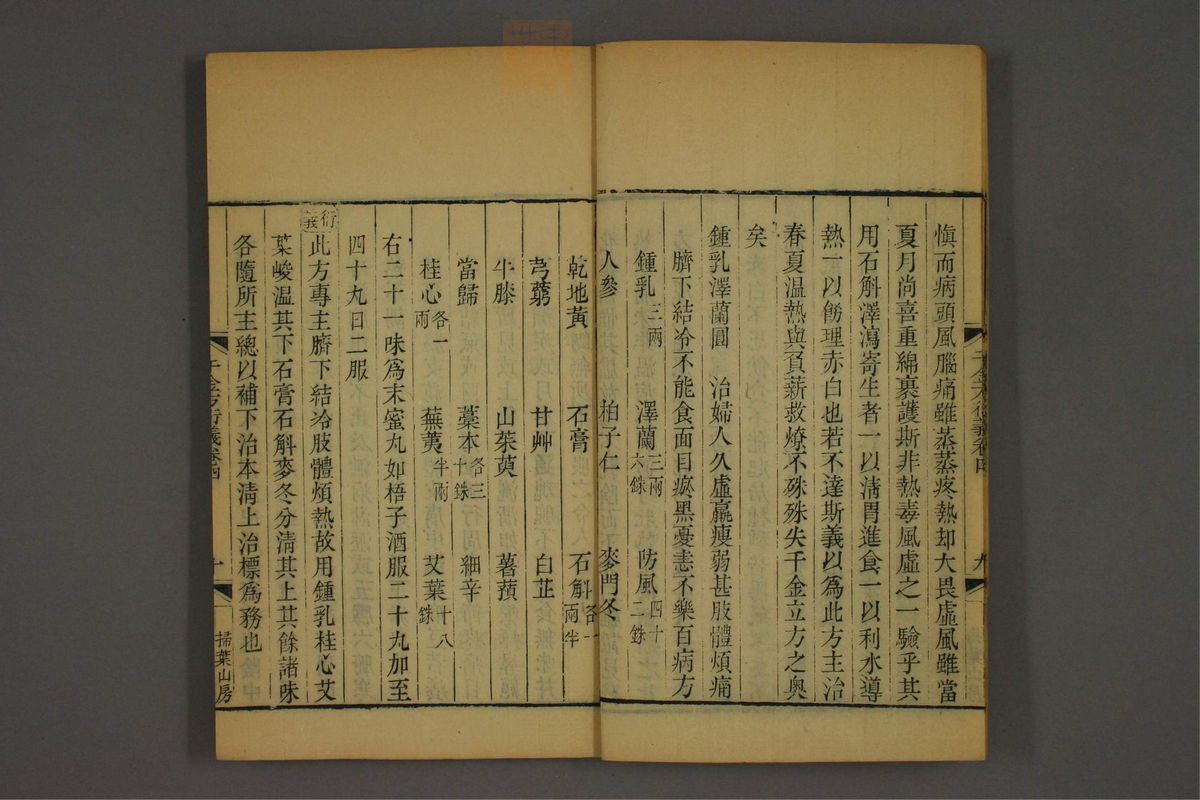 慎而病頭風腦痛雖蒸蒸疼熱却大畏虛風雖當
夏月尚喜重綿裹護斯非熱毒風虛之一驗乎其
用石斛澤瀉寄生者一以淸胃進食一以利水導
熱一以飭理赤白也若不達斯義以爲此方主治
春夏温熱與負薪救燎不殊殊失千金立方之奥
矣
鍾乳澤蘭圓 治婦人久虛羸瘦弱甚肢體煩痛
臍下結冷不能食面目瘀黑憂恚不樂百病方
鍾乳三兩 澤蘭三兩六銖 防風四十二銖
人參 柏子仁 麥門冬
千金方衍義卷四 九
乾地黄 石膏 石斛各一兩半
芎藭 甘艸 白芷
牛膝 山茱萸 薯蕷
當歸 藁本各三十銖 細辛
桂心各一兩 蕪荑半兩 艾葉十八銖
右二十一味爲末蜜丸如梧子酒服二十九加至
四十九日二服
衍義此方專主臍下結冷肢體煩熱故用鍾乳桂心艾
葉峻温其下石膏石斛麥冬分清其上其餘諸味
各隨所主總以補下治本清上治標爲務也
千金方衍義卷四 十 掃葉山房